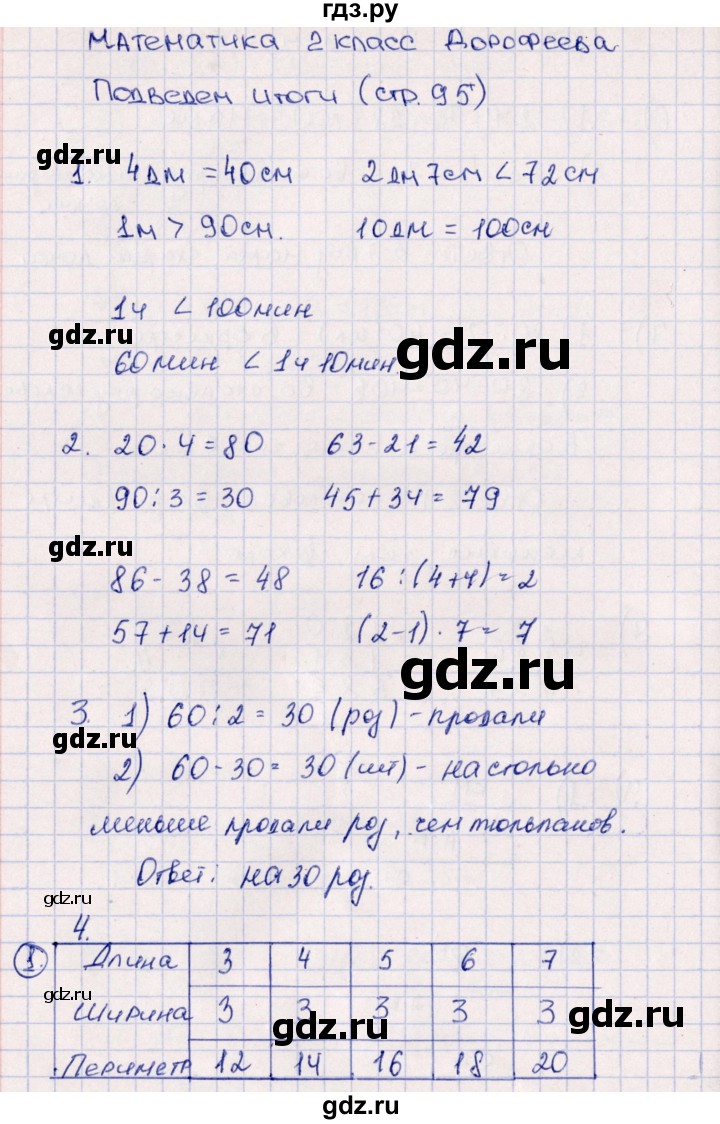 гдз.ру
Математика 2 класс Дорофеева
Подведем итоги (стр. 95)
gdz.ru
1. 4дм = 40см 2дм 7см < 72см
1м > 90см. 10дм = 100см
1ч < 100мин
gdz.ru
gdz.ru
60мин < 1ч 10мин.
2. 20·4=80 63-21=42
90:3=30 45+34=79
gdz.ru
86-38=48 16:(4+4)=2
57+14=71 (2-1)·7=7
gdz.ru
3. 1) 60:2=30 (роз) - продали
gdz.ru
2) 60-30=30 (шт) - на столько
меньше продали роз, чем тюльпанов.
Ответ: на 30 роз.
gdz.ru
4.
1. Длина 3 4 5 6 7
gdz.ru
Ширина 3 3 3 3 3
gdz.ru
gdz.ru
Периметр 12 14 16 18 20
gdz.ru